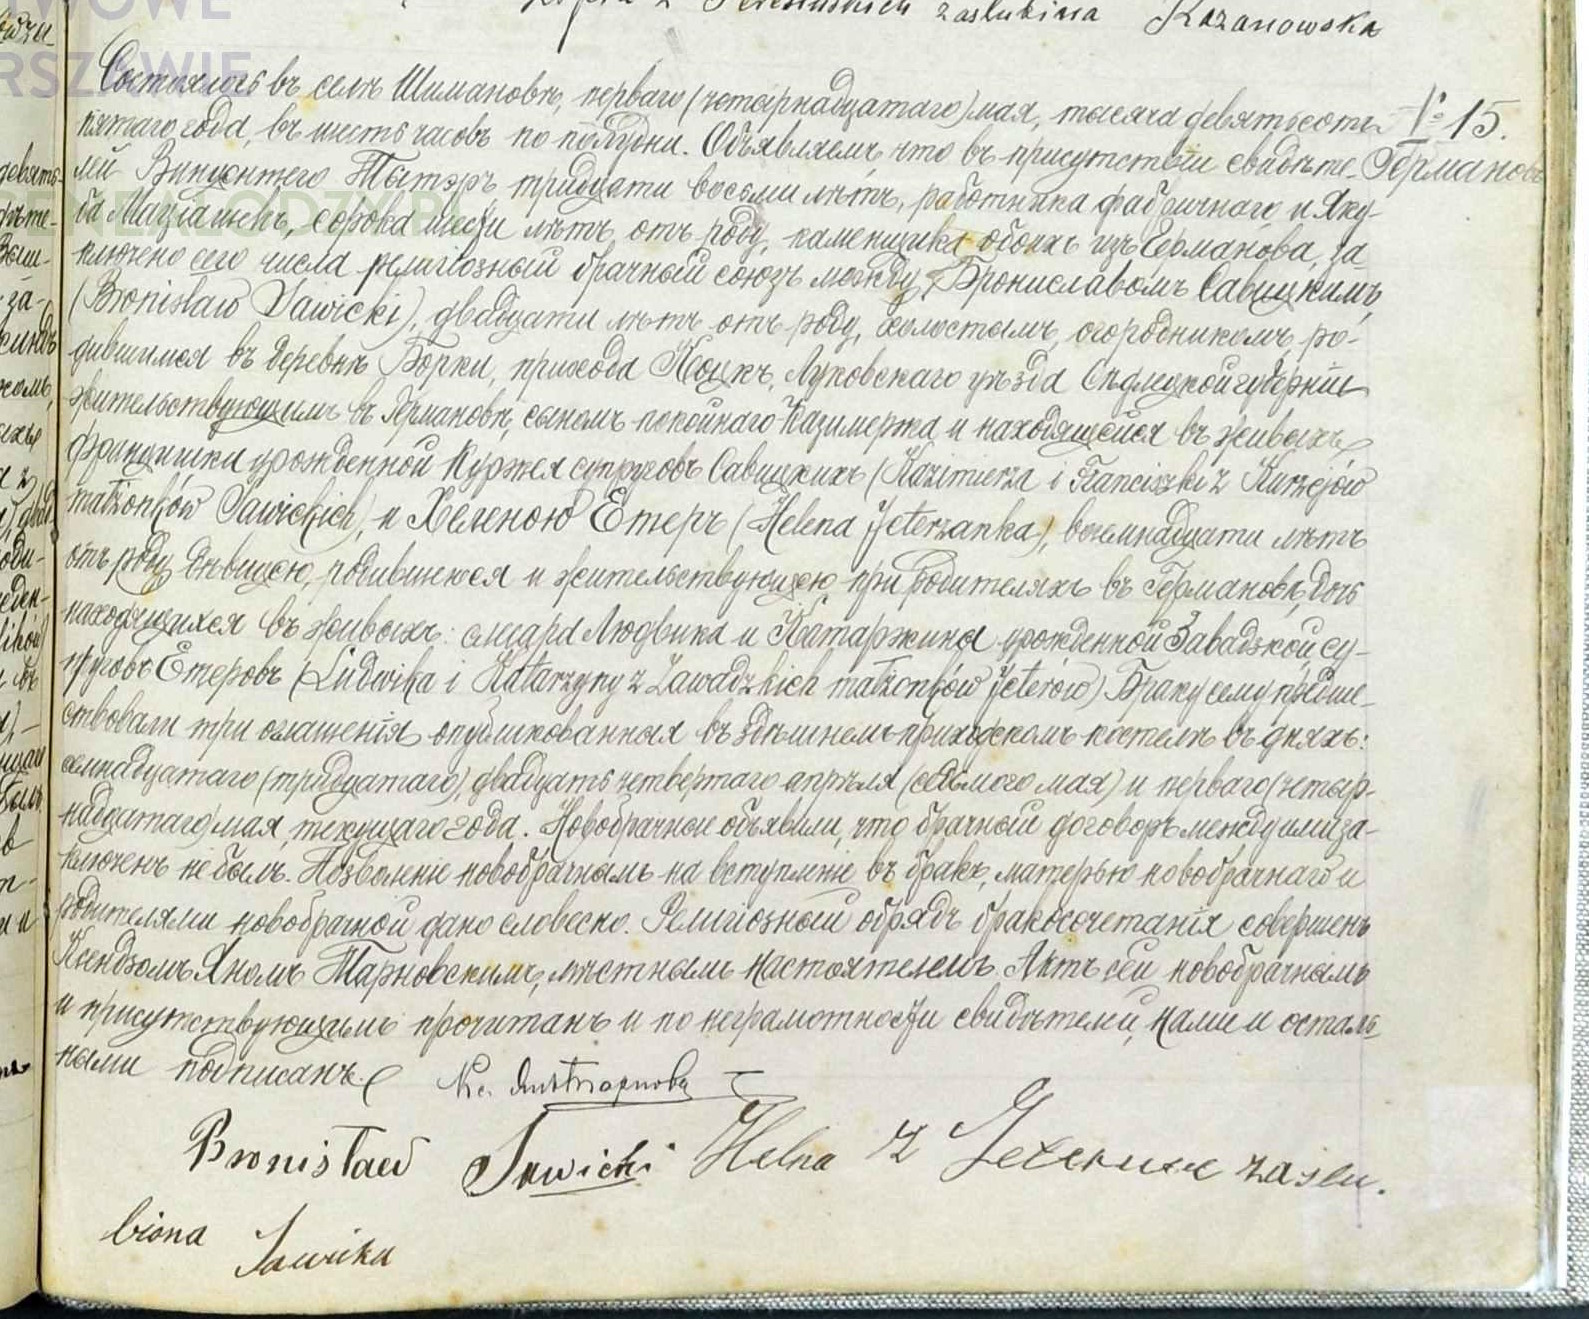 Zofia z Teresińskich zaślubiona Kazanowska
Состоялось въ селѣ Шимановѣ, перваго (четырнадцатаго) мая, тысяча девятьсотъ
№ 15.
пятаго года, въ шесть часовъ по полудни. Объявляемъ, что въ присутствіи свидѣте-
Германовъ
лей Винцентего Тытэръ, тридцати восьми лѣтъ, работника фабричнаго и Яку-
ба Маціакъ, сорока шести лѣтъ отъ роду, каменщика обоихъ изъ Германова, за-
ключено сего числа религіозный брачный союзъ между Брониславомъ Савицкимъ,
(Bronisław Sawicki), двадцати лѣтъ отъ роду, холостымъ, огородникомъ, ро-
дившимся въ деревнѣ Борки, прихода Коцкъ, Луковскаго уѣзда Сѣдлецкой губерніи
жительствующимъ въ Германовѣ, сыномъ покойнаго Казимержа и находящейся въ живыхъ
Францишки урожденной Куржея супруговъ Савицкихъ (Kazimierza i Franciszki z Kurzejów
małżonków Sawickich), и Хеленою Етеръ (Helena Jeterzanka), восемнадцати лѣтъ
отъ роду, дѣвицею, родившеюся и жительствующею при родителяхъ въ Германовѣ, дочь
находящихся въ живыхъ: слесаря Людвика и Катаржины урожденной Завадзкой су-
пруговъ Етеровъ (Ludwika i Katarzyny z Zawadzkich małżonków Jeterów) Браку сему предше-
ствовали три оглашенія опубликованныя въ здѣшнемъ приходскомъ костелѣ въ дняхъ:
семнадцатаго (тридцатаго), двадцать четвертаго апрѣля (седьмого мая) и перваго (четыр-
надцатаго) мая, текущаго года. Новобрачные объявили, что брачный договоръ между ими за-
ключенъ не былъ. Позволеніе новобрачнымъ на вступленіе въ бракъ, матерью новобрачнаго и
родителями новобрачной дано словесно. Религіозный обрядъ бракосочетанія совершенъ
Ксендзомъ Яномъ Тарновскимъ, мѣстнымъ настоятелемъ. Актъ сей новобрачнымъ
и присутствующимъ прочитанъ и по неграмотности свидѣтелей, нами и осталь-
ными подписанъ.
Кс.
Bronisław Sawicki Helna z Jeterów zaślu.
biona Sawika